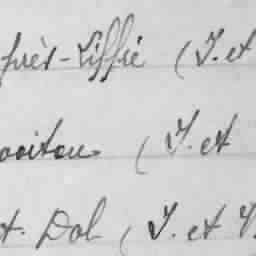 près-Liffré (I. et
Poitou (I. et
t. Dol (I. et V.